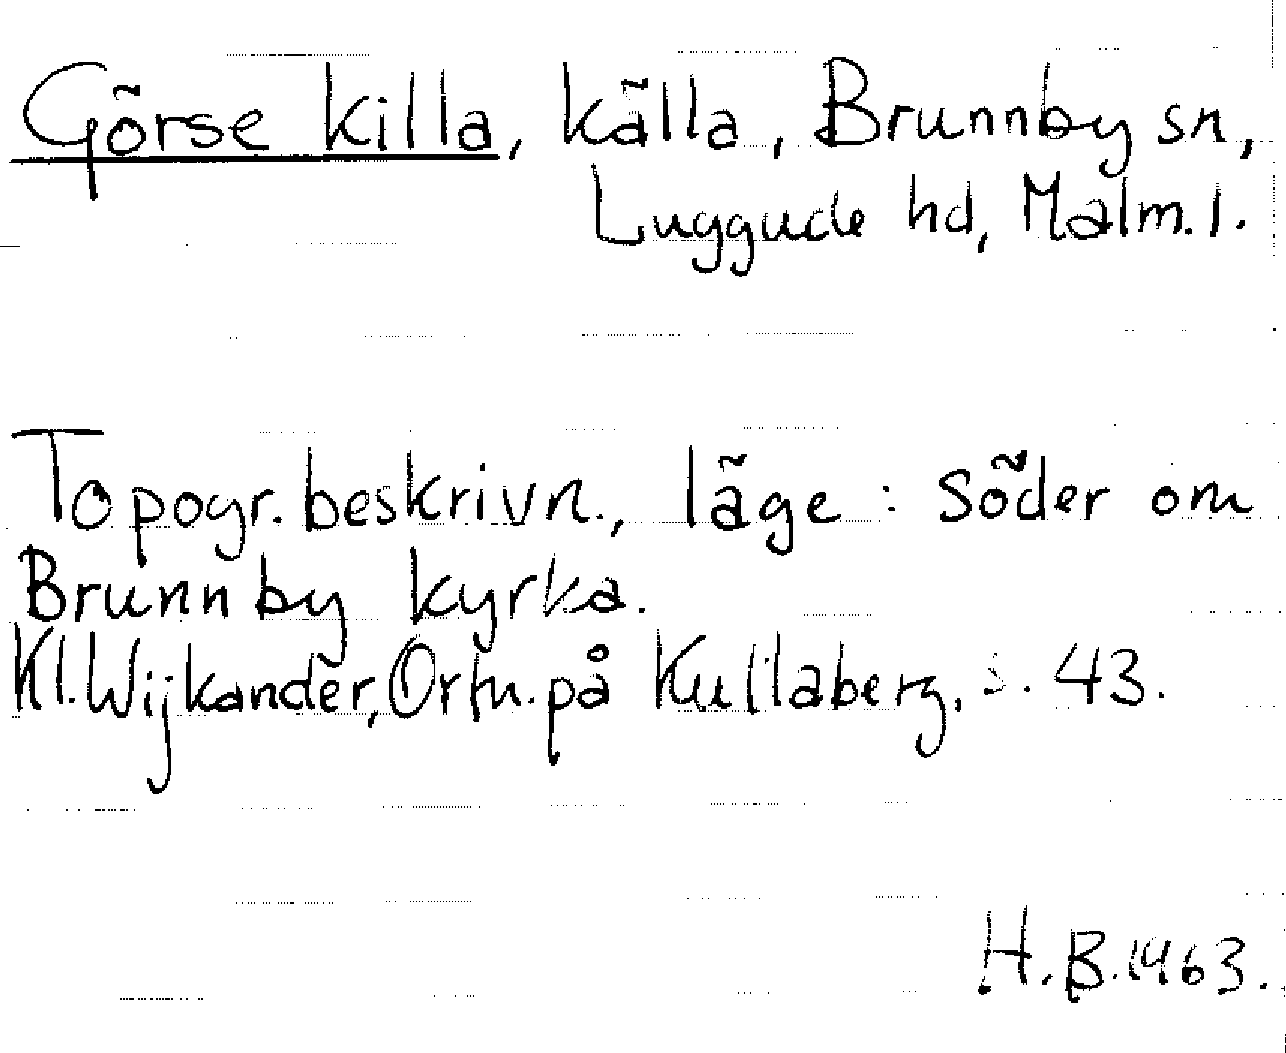 Görse killa, källa, Brunnby sn,
Luggude hd, Malm. l.
Topogr. beskrivn., läge: söder om
Brunnby kyrka.
Kl. Wijkander, Ortn. på Kullaberg, s. 43.
H. B. 1963.